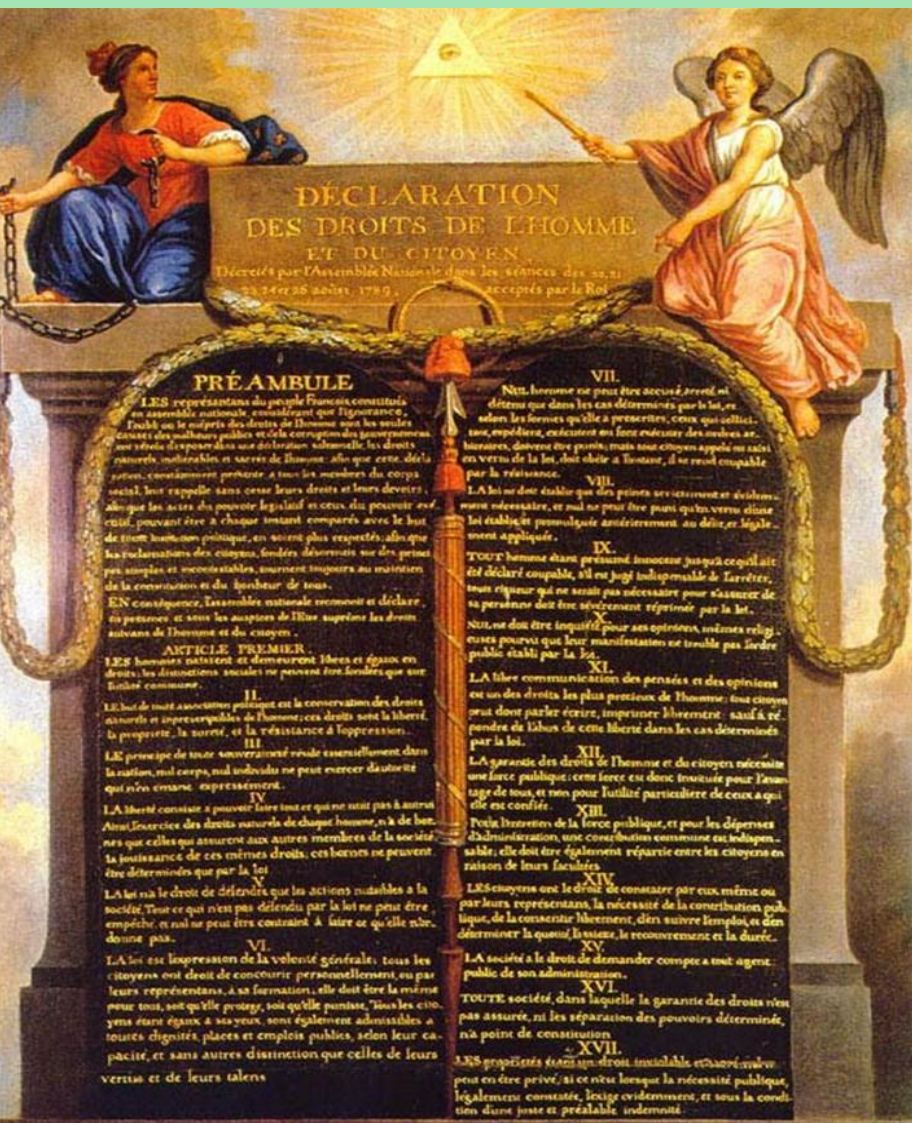 DÉCLARATION
DES DROITS DE L'HOMME
ET DU CITOYEN,
Décretés par l'Assemblée Nationale dans les séances des 20, 21
23, 24 et 26 aoûst, 1789, acceptés par le Roi
PRÉAMBULE
LES représentans du peuple Francois, constitués
en assemblée nationale, considérant que l'ignorance,
l'oubli ou le mépris des droits de l'homme sont les seules
causes des malheurs publics et de la corruption des gouvernemens
ont résolu d'exposer dans une déclaration solemnelle, les droits
naturels, inaliénables et sacrés de l'homme: afin que cette, décla
ration, constamment présente a tous les membres du corps
social, leur rappelle sans cesse leurs droits et leurs devoirs;
afin que les actes du pouvoir legislatif et ceux du pouvoir exé
cutif, pouvant être à chaque instant comparés avec le but
de toute institution politique, en soient plus respectés; afin que
les reclamations des citoyens, fondées désormais sur des princi
pes simples et incontestables, tournent toujours au maintien
de la constitution et du bonheur de tous.
EN conséquence, l'assemblée nationale reconnoit et déclare,
en présence et sous les auspices de l'Etre suprême les droits
suivans de l'homme et du citoyen.
ARTICLE PREMIER.
LES hommes naissent et demeurent libres et égaux en
droits; les distinctions sociales ne peuvent être fondées que sur
l'utilité commune.
II.
LE but de toute association politique est la conservation des droits
naturels et imprescriptibles de l'homme; ces droits sont la liberté,
la propriété, la sureté, et la résistance à l'oppression.
III.
LE principe de toute souveraineté réside essentiellement dans
la nation, nul corps, nul individu ne peut exercer d'autorité
qui n'en emane expressement.
IV.
LA liberté consiste a pouvoir faire tout ce qui ne nuit pas à autrui
Ainsi, l'exercice des droits naturels de chaque homme, n'a de bor
nes que celles qui assurent aux autres membres de la société
la jouissance de ces mêmes droits; ces bornes ne peuvent
être déterminées que par la loi
V.
LA loi n'a le droit de défendre que les actions nuisibles a la
société. Tout ce qui n'est pas défendu par la loi ne peut être
empêché, et nul ne peut être contraint à faire ce qu'elle n'or-
donne pas.
VI.
LA loi est l'expression de la volonté générale; tous les
citoyens ont droit de concourir personnellement, ou par
leurs représentans, à sa formation; elle doit être la même
pour tous, soit qu'elle protege, soit qu'elle punisse, Tous les cito
yens étant égaux à ses yeux, sont également admissibles a
toutes dignités, places et emplois publics, selon leur ca-
pacité, et sans autres distinction que celles de leurs
vertus et de leurs talens
VII.
NUL homme ne peut être accusé, arreté, ni
détenu que dans les cas déterminés par la loi, et
selon les formes qu'elle a prescrites, ceux qui sollici-
tent, expédient, exécutent ou font exécuter des ordres ar-
bitraires, doivent être punis; mais tout citoyen appelé ou saisi
en vertu de la loi, doit obéir a l'instant, il se rend coupable
par la résistance.
VIII.
LA loi ne doit établir que des peines strictement et évidem-
ment nécessaire, et nul ne peut être puni qu'en vertu d'une
loi établie et promulguée antérieurement au délit, et légale-
ment appliquée.
IX.
TOUT homme étant présumé innocent jusqu'à ce qu'il ait
été déclaré coupable, s'il est jugé indispensable de l'arrêter,
toute rigueur qui ne serait pas nécessaire pour s'assurer de
sa personne doit être sévèrement réprimée par la loi.
X.
NUL ne doit être inquiété pour ses opinions, mêmes religi
euses pourvu que leur manifestation ne trouble pas l'ordre
public établi par la loi.
XI.
LA libre communication des pensées et des opinions
est un des droits les plus precieux de l'homme: tout citoyen
peut donc parler écrire, imprimer librement: sauf à ré-
pondre de l'abus de cette liberté dans les cas déterminés
par la loi.
XII.
LA garantie des droits de l'homme et du citoyen nécessite
une force publique; cette force est donc instituée pour l'avan
tage de tous, et non pour l'utilité particuliere de ceux a qui
elle est confiée.
XIII.
Pour l'entretien de la force publique, et pour les dépenses
d'administration, une contribution commune est indispen-
sable; elle doit être également répartie entre les citoyens en
raison de leurs facultées
XIV.
LES citoyens ont le droit de constater par eux même ou
par leurs représentans, la nécessité de la contribution pub-
lique, de la consentir librement, d'en suivre l'emploi, et d'en
déterminer la quotité, l'assiete, le recouvrement et la durée.
XV.
LA société a le droit de demander compte a tout agent
public de son administration.
XVI.
TOUTE société, dans laquelle la garantie des droits n'est
pas assurée, ni les séparation des pouvoirs déterminée,
n'a point de constitution
XVII.
LES propriétés étant un droit inviolable et sacré, nul ne
peut en être privé, si ce n'est lorsque la nécessité publique,
légalement constatée, l'exige evidemment, et sous la condi-
tion d'une juste et préalable indemnité.